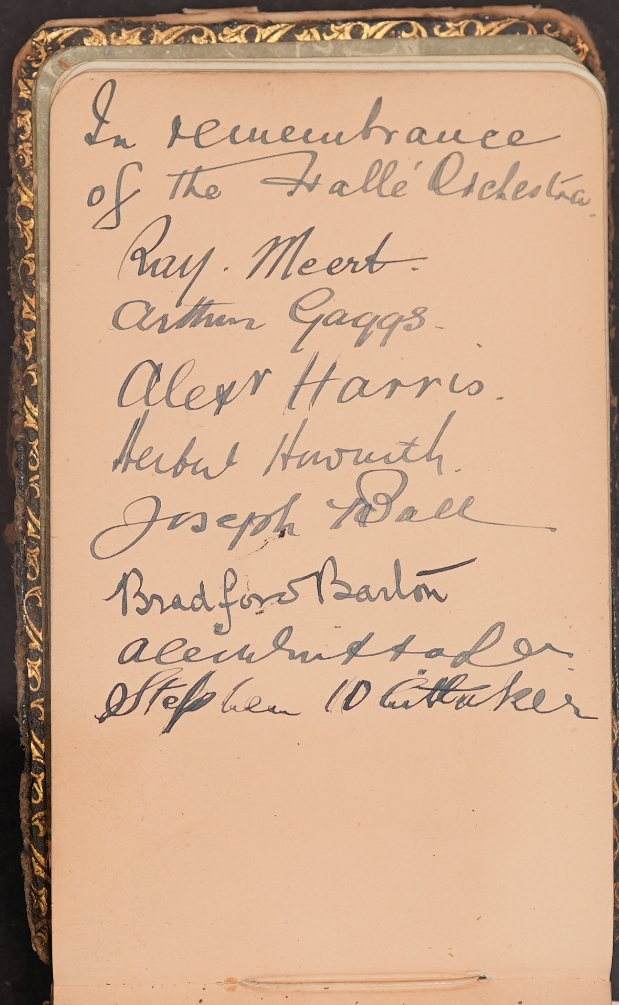 In remembrance
of the Hallé Orchestra.
Ray. Meert.
Arthur Gaggs.
Alexr Harris.
Herbert Howorth.
Joseph Ball
Bradford Barton
Stephen Whittaker